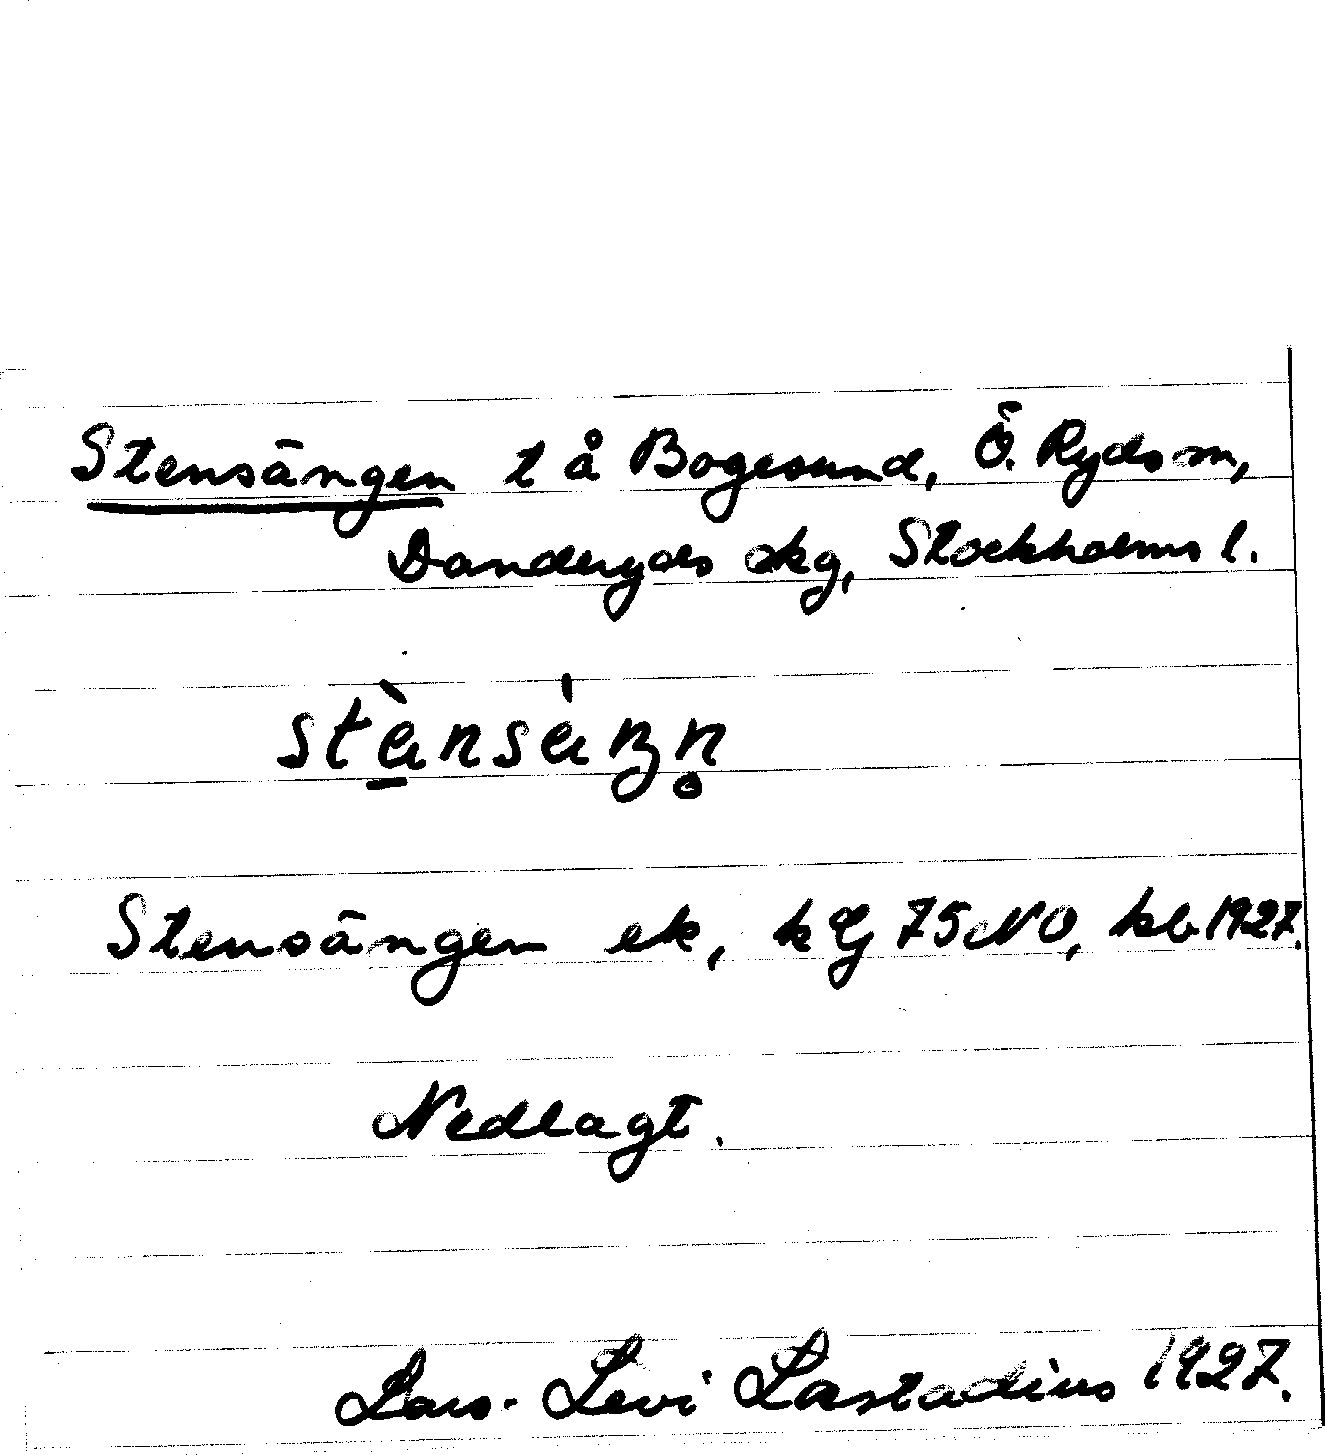 Stensängen t å Bogesund, Ö. Ryds sn,
Danderyds skg, Stockholms l.
stènsèŋn̥
Stensängen ek, kG 75 NO, kb 1927.
Nedlagt.
Lars-Levi Læstadius 1927.